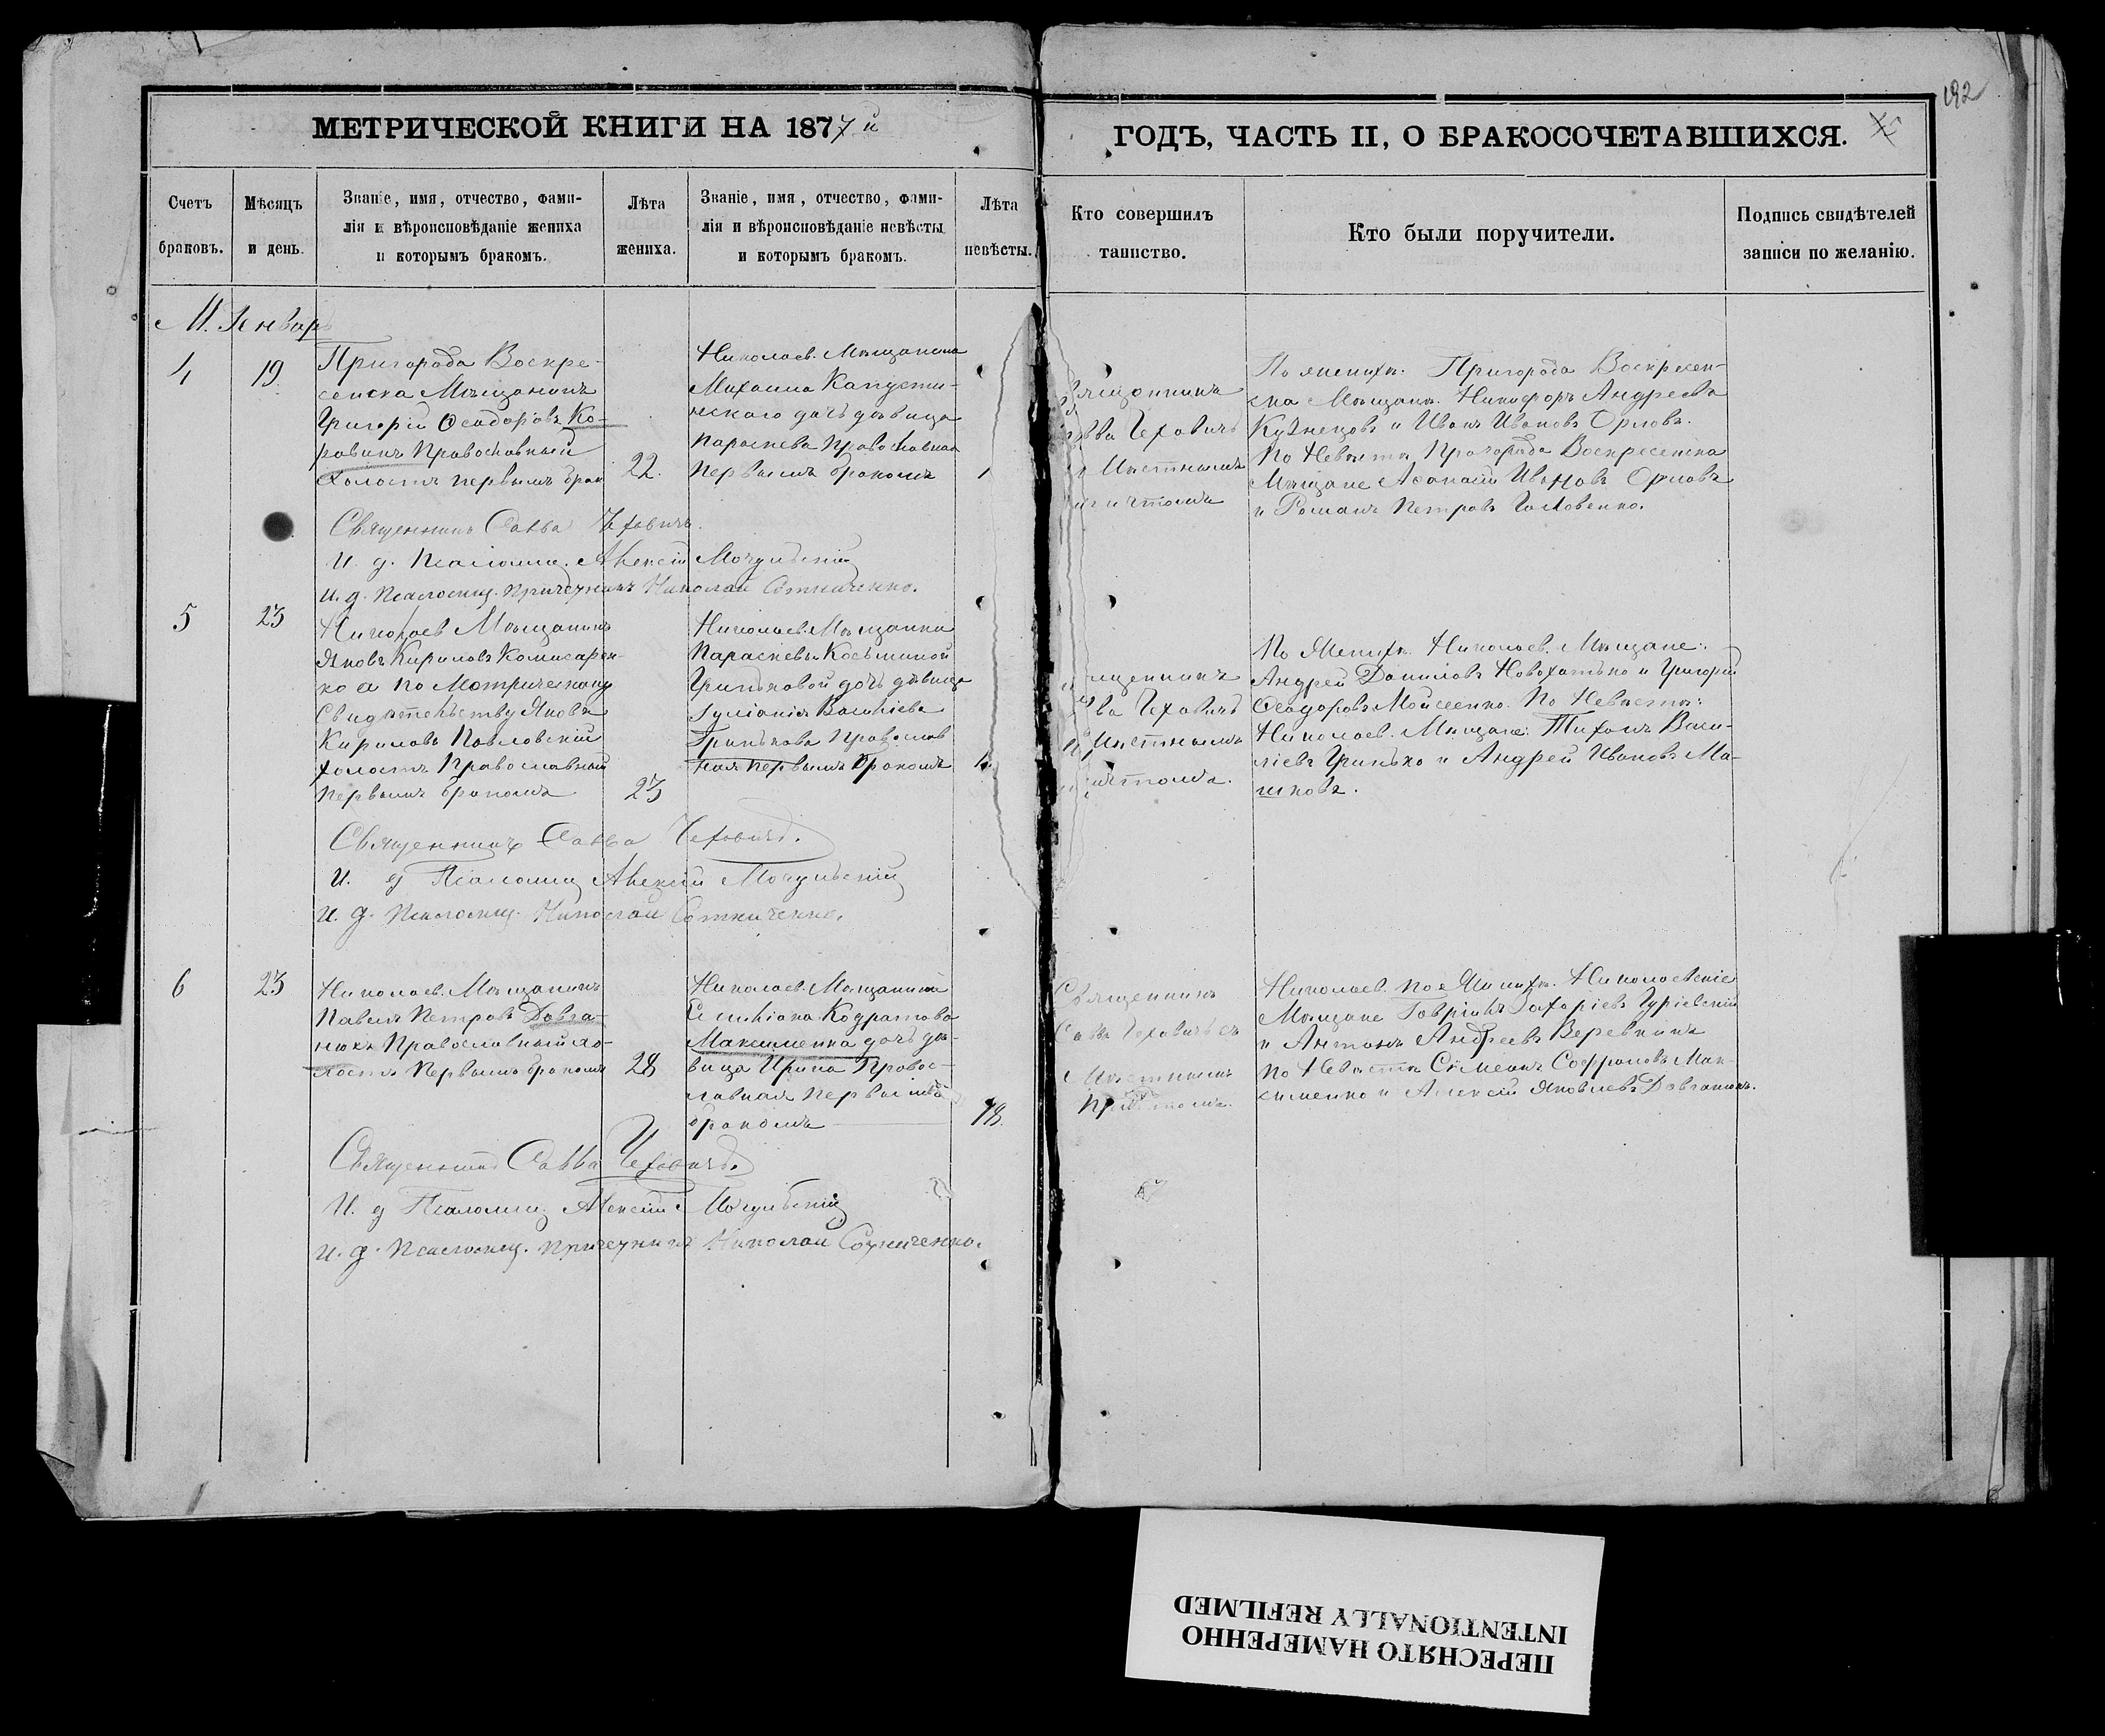 192
МЕТРИЧЕСКОЙ КНИГИ НА 1877 й
ГОДЪ, ЧАСТЬ II, О БРАКОСОЧЕТАВШИХСЯ.
Счетъ браковъ.
Мѣсяцъ и день.
Званіе, имя, отчество, фами-
лія и вѣроисповѣданіе жениха
и которымъ бракомъ.
Лѣта жениха.
Званіе, имя, отчество, фами-
лія и вѣроисповѣданіе невѣсты
и которымъ бракомъ.
Лѣта невѣсты.
Кто совершилъ
таинство.
Кто были поручители.
Подпись свидѣтелей
записи по желанію.
М. Январь
4
19
Пригорода Воскре-
сенска Мѣщанинъ
Григорій Ѳеодоровъ Ко-
равинъ Православный
холостъ первымъ брак
22.
Николаев. Мѣщанина
Михаила Капусти-
нскаго дочь дѣвица
Параскева Православная
первымъ бракомъ
Чеховичъ
Мѣстнымъ
По женихѣ. Пригорода Воскресен-
ска Мѣщане. Никифоръ Андреевъ
Кузнецовъ и Иванъ Ивановъ Орловъ.
По Невѣстѣ Пригорода Воскресенска
Мѣщане Аѳанасій Ивановъ Орловъ
и Романъ Петровъ Головенко.
Священникъ Савва Чеховичъ.
И. д. Псаломщ. Алексій Мочульскій
И. д. Псаломщ. Причетникъ Николай Сотниченко.
5
23
Николаев Мѣщанинъ
Яковъ Кириловъ Комисарен-
ко а по Метрическому
Свидѣтельству Яковъ
Кириловъ Павловскій
холостъ Православный
первымъ бракомъ
23
Николаев. Мѣщанки
Параскевы Косьминой
Гриньковой дочь дѣвица
Іуліанія Василіева
Гринькова Православ
ная первымъ бракомъ
Чеховичъ
Мѣстнымъ
По Женихѣ Николаев. Мѣщане:
Андрей Даниловъ Новохатько и Григорій
Ѳеодоровъ Мойсеенко. По Невѣстѣ:
Николаев. Мѣщане: Тихонъ Васи-
ліевъ Гринько и Андрей Ивановъ Ма-
шковъ.
Священникъ Савва Чеховичъ.
И. д Псаломщ Алексій Мочульскій
И. д. Псаломщ. Николай Сотниченко.
6
23
Николаев. Мѣщанинъ
Павелъ Петровъ Довга-
нюкъ Православный хо-
лостъ Первымъ бракомъ
28
Николаев. Мѣщанина
Емиліана Кодратова
Максименка дочь дѣ-
вица Ирина Правос-
лавная первымъ
бракомъ
18.
Священникъ
Савва Чеховичъ съ
Мѣстнымъ
Причтомъ.
Николаев. по Женихѣ. Николаевскіе
Мѣщане Гавріилъ Захаріевъ Гуріевскій
и Антонъ Андреевъ Веревкинъ
по Невѣстѣ Симеонъ Софроновъ Мак-
сименко и Алексій Яковлевъ Довганюкъ.
Священникъ Савва Чеховичъ.
И. д Псаломщ Алексій Мочульскій
И. д. Псаломщ. Причетникъ Николай Сотниченко.
ПЕРЕСНЯТО НАМЕРЕННО
INTENTIONALLY REFILMED